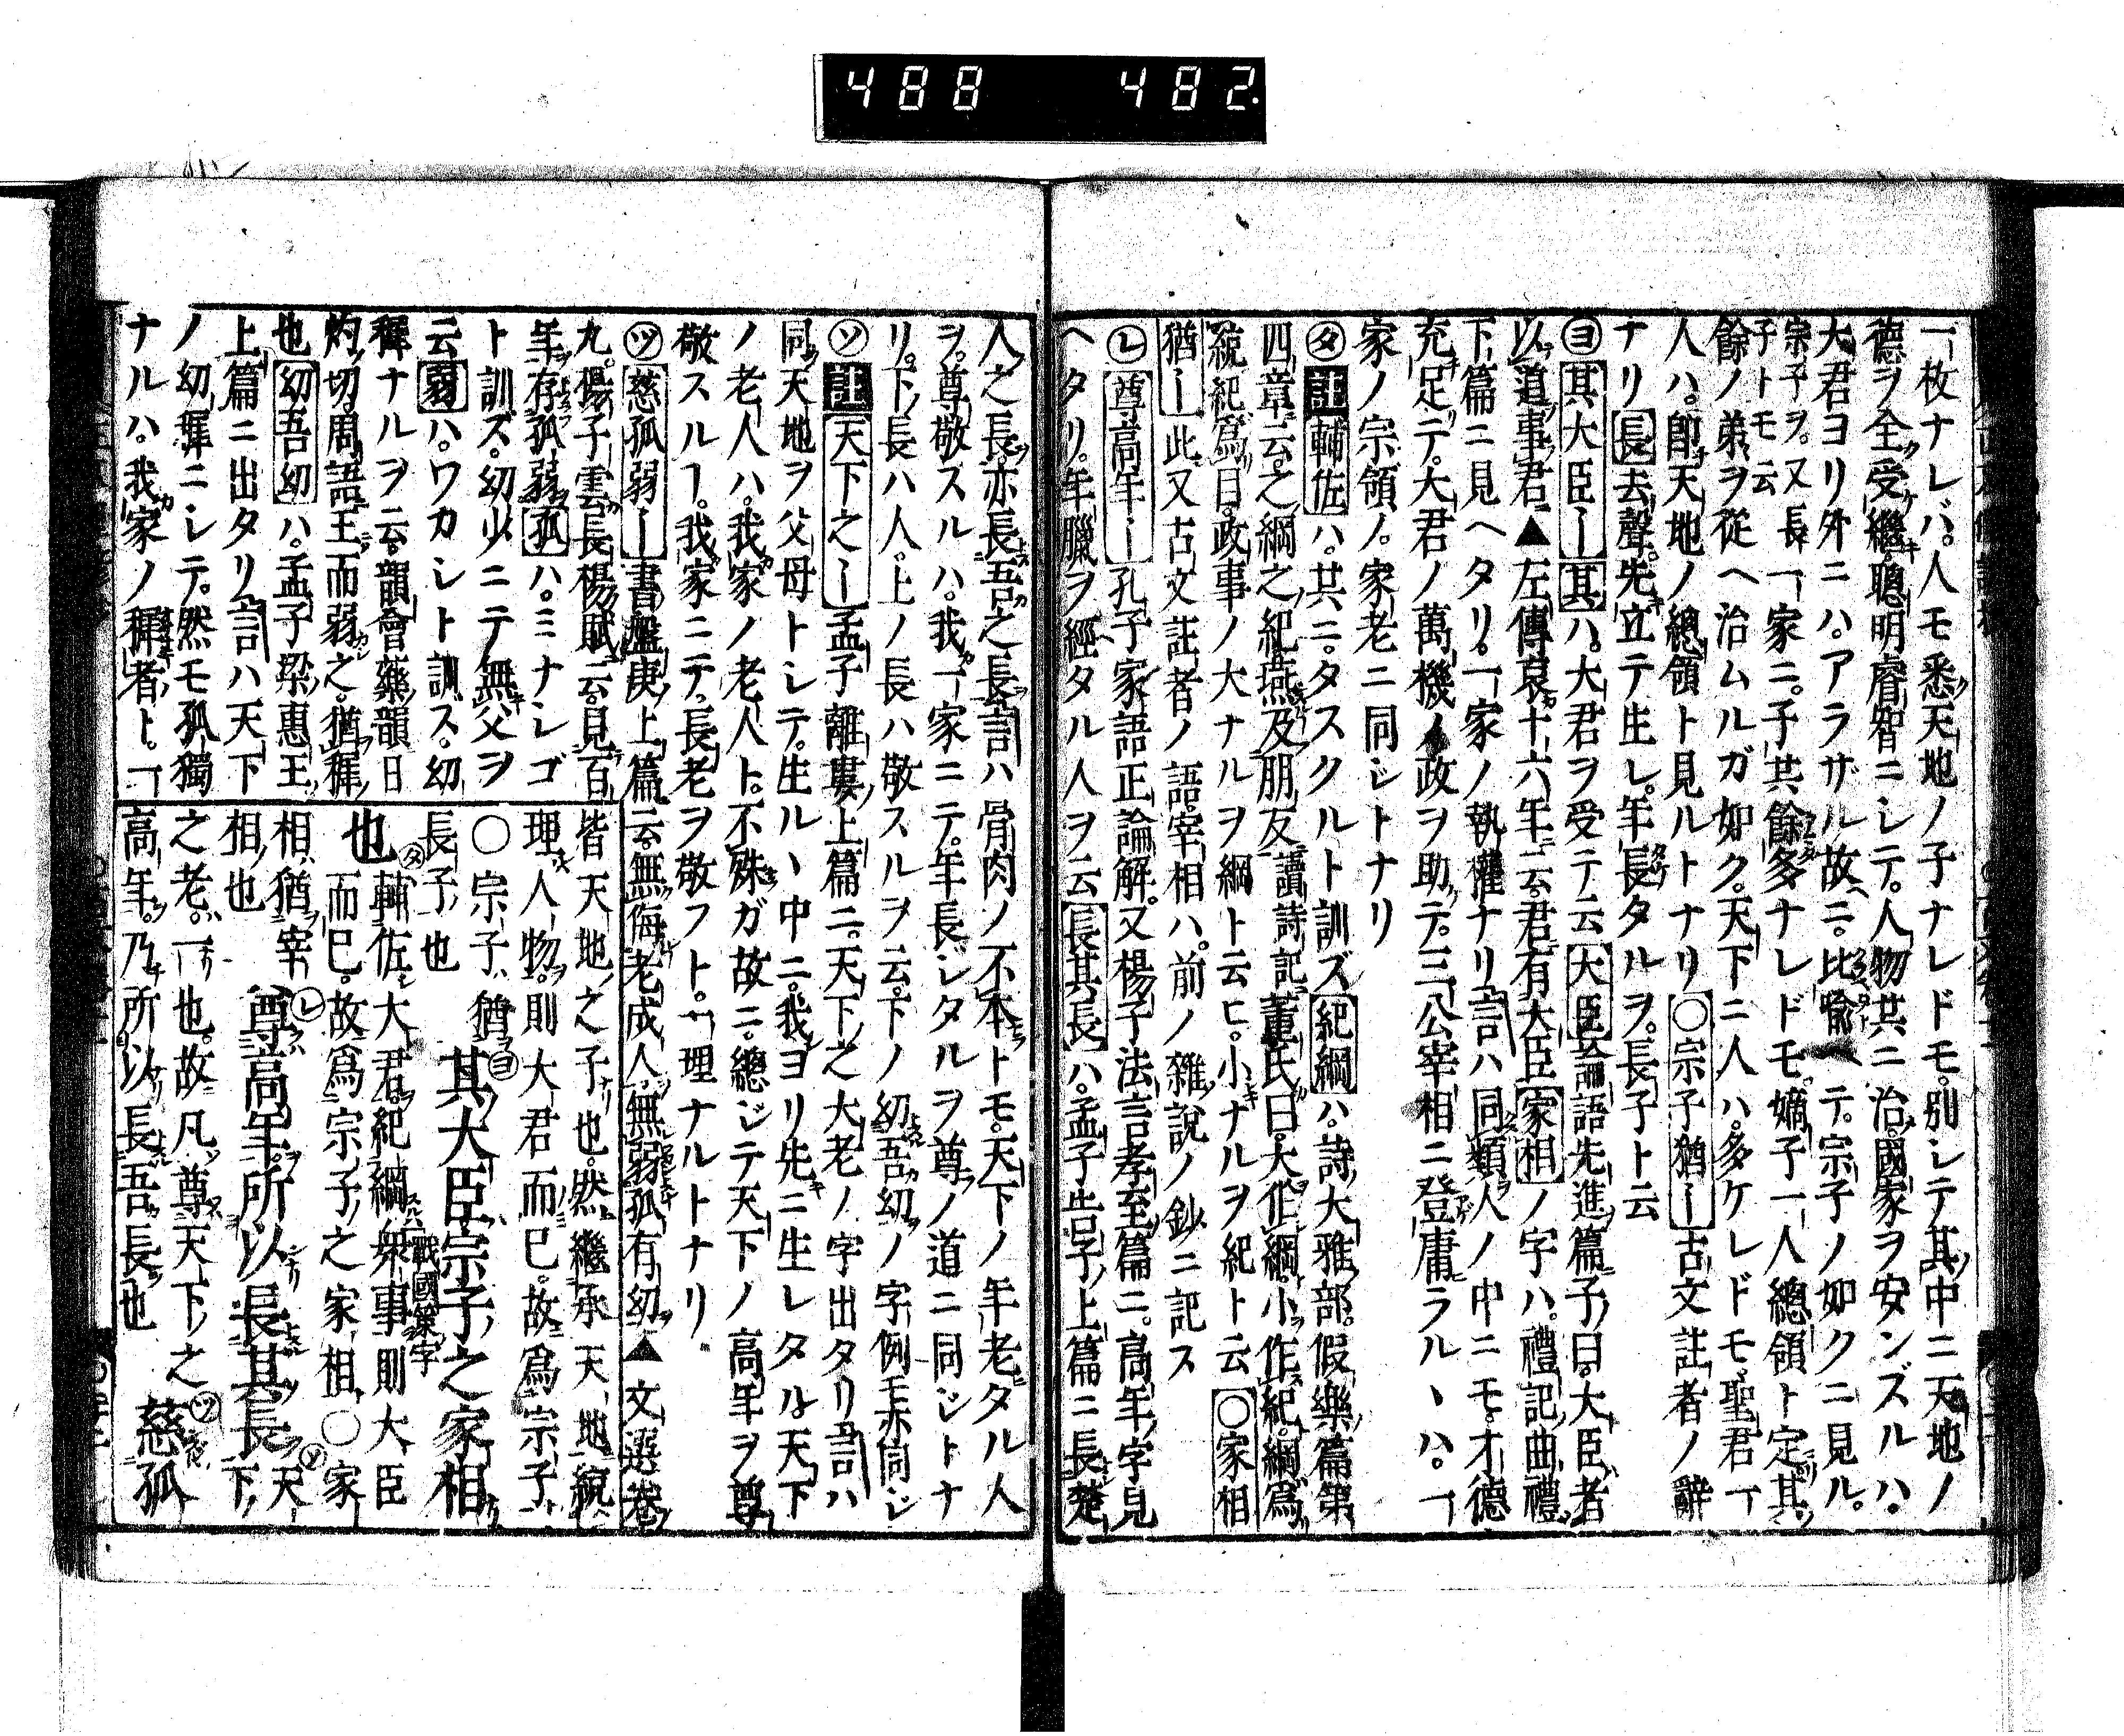 488 482
一枚ナレバ。人モ悉天地ノ子ナレドモ。別シテ其中ニ天地ノ
德ヲ全受繼。聰明睿智ニシテ。人物共ニ治。國家ヲ安ンズルハ。
大君ヨリ外ニハ。アラザル故ニ。比喩ヘテ。宗子ノ如クニ見ル。
宗子ヲ。又長子トモ云 一家ニ。子共餘多ナレドモ。嫡子一人總領ト定。其
餘ノ弟ヲ從ヘ治ムルガ如ク。天下ニ人ハ。多ケレドモ。聖君一
人ハ。卽天地ノ總領ト見ルトナリ〇宗子猶ー古文註者ノ辭
ナリ長去聲。先立テ生レ。年長タルヲ。長子ト云
ヨ其大臣ー其ハ。大君ヲ受テ云大臣論語先進篇子曰。大臣者
以道事君▲左傳哀十六年云。君有大臣家相ノ字ハ。禮記曲禮
下篇ニ見ヘタリ。一家ノ執權ナリ言ハ同類人ノ中ニモ。才德
充足テ。大君ノ萬機ノ政ヲ助テ。三公宰相ニ登庸ラルヽハ。一
家ノ宗領ノ。家老ニ同ジトナリ
タ註輔佐ハ。共ニ。タスクルト訓ズ紀綱ハ。詩大雅部。假樂篇第
四章云。之綱之紀。燕及朋友 讀詩記董氏曰。大作綱。小作紀。綱爲
統紀爲目。政事ノ大ナルヲ綱ト云ヒ。小ナルヲ紀ト云〇家相
猶ー此又古文註者ノ語。宰相ハ。前ノ雜說ノ鈔ニ記ス
レ尊高年ー孔子家語正論解。又楊子法言孝至篇ニ。高年字見
ヘタリ。年臘ヲ經タル人ヲ云長其長ハ。孟子告子上篇ニ長楚
人之長。亦長吾之長言ハ骨肉ノ不本トモ。天下ノ年老タル人
ヲ。尊敬スルハ。我一家ニテ。年長ジタルヲ尊ノ道ニ同ジトナ
リ。下長ハ人。上ノ長ハ敬スルヲ云。下ノ幼吾幼ノ字例モ亦同ジ
ソ註天下之ー孟子離婁上篇ニ。天下之大老ノ字出タリ言ハ
同天地ヲ父母トシテ。生ルヽ中ニ。我ヨリ先ニ生レタル天下
ノ老人ハ。我家ノ老人ト。不殊ガ故ニ。總ジテ天下ノ高年ヲ尊
敬スルヿ。我家ニテ。長老ヲ敬フト。一理ナルトナリ
ツ慈孤弱ー書盤庚上篇云。無侮老成人無弱孤有幼▲文選卷
九。楊子雲長楊賦云。見百
年存孤弱孤ハ。ミナシゴ
ト訓ズ。幼少ニテ無父ヲ
云弱ハ。ワカシト訓ス。幼
穉ナルヲ云。韻會藥韻日
灼切。周語王而弱之。猶穉
也幼吾幼ハ。孟子梁惠王
上篇ニ出タリ言ハ天下
ノ幼穉ニシテ。然モ孤獨
ナルハ。我家ノ穉者ト。一
皆天地之子也。然繼承天地統
理人物。則大君而已。故爲宗子
〇宗子猶長子也 其大臣宗子之家相
也 輔佐大君紀綱衆事則大臣
戰國策字
而已。故爲宗子之家相〇家
相猶宰相也 尊高年。所以長其長 天下
之老。一也。故凡尊天下之
高年。乃所以長吾長也 慈孤